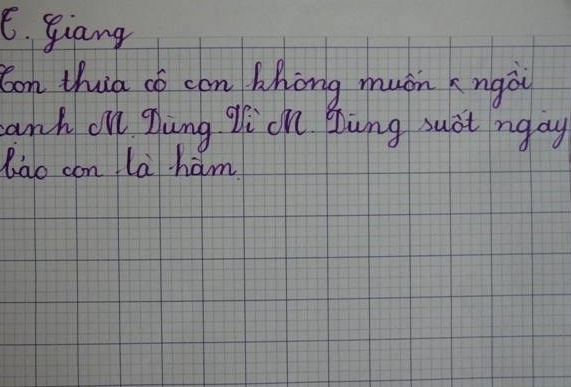 E. Giang
Con thưa cô con không muốn ngồi
cạnh M. Dũng Vì M. Dũng suốt ngày
bảo con là hâm.